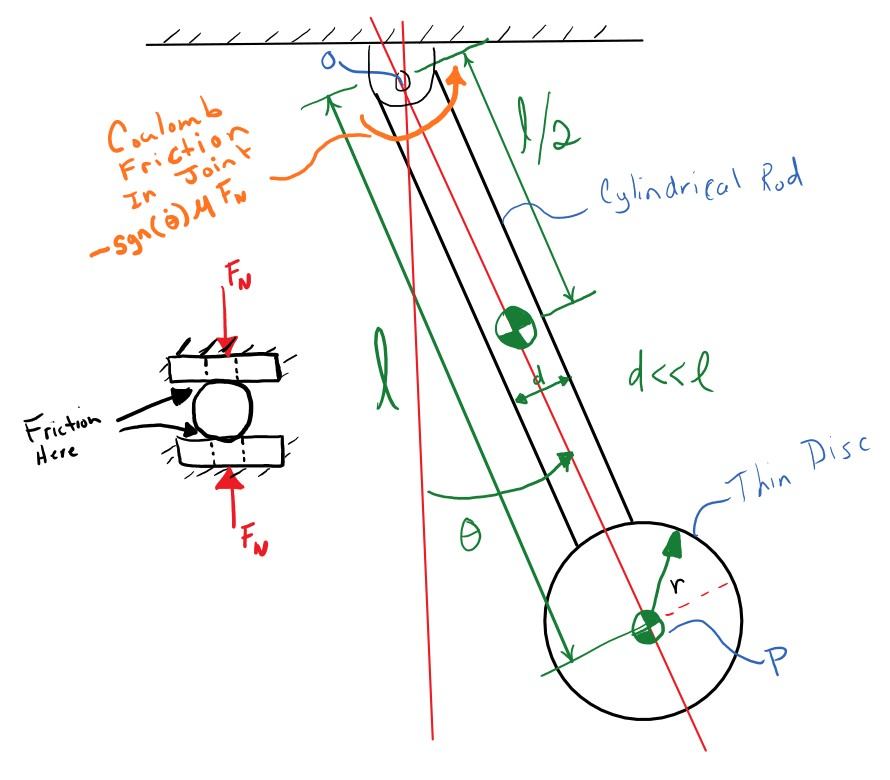 O
Coulomb
Friction
In Joint
-sgn(θ̇)μ F_N
l/2
Cylindrical Rod
F_N
l
d
d<<l
Friction
Here
θ
Thin Disc
r
F_N
P